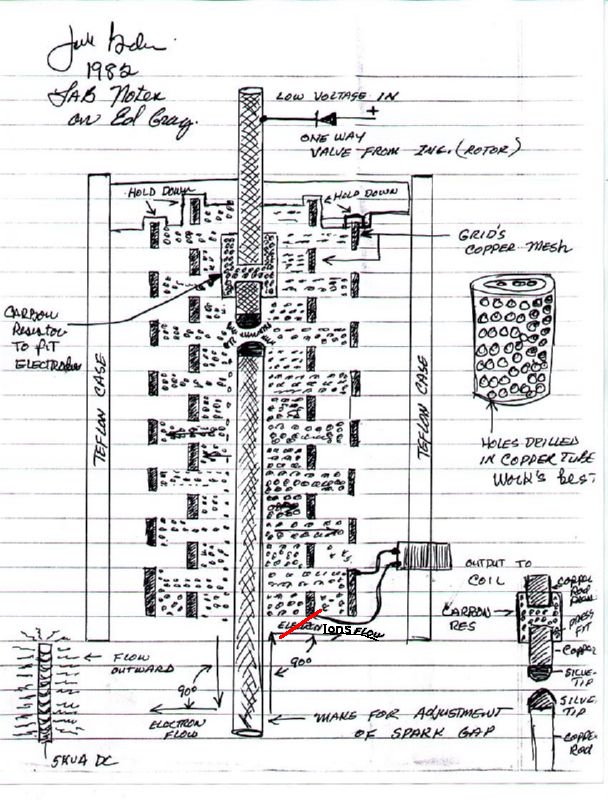 1982
LAB Notes
on Ed Gray.
LOW VOLTAGE IN
+
ONE WAY
VALVE FROM ING. (ROTOR)
HOLD DOWN
HOLD DOWN
GRID'S
COPPER MESH
CARBON
RESISTOR
TO FIT
ELECTRODES
TEFLON CASE
TEFLON CASE
HOLES DRILLED
IN COPPER TUBE
WORK'S BEST
OUTPUT TO
COIL
COPPER
ROD
CARBON
RES
PRESS
FIT
COPPER
SILVE-
TIP
SILVE-
TIP
COPPER
ROD
Ions FLOW
90°
FLOW
OUTWARD
90°
ELECTRON
FLOW
MAKE FOR ADJUSTMENT
OF SPARK GAP
5KVA DC